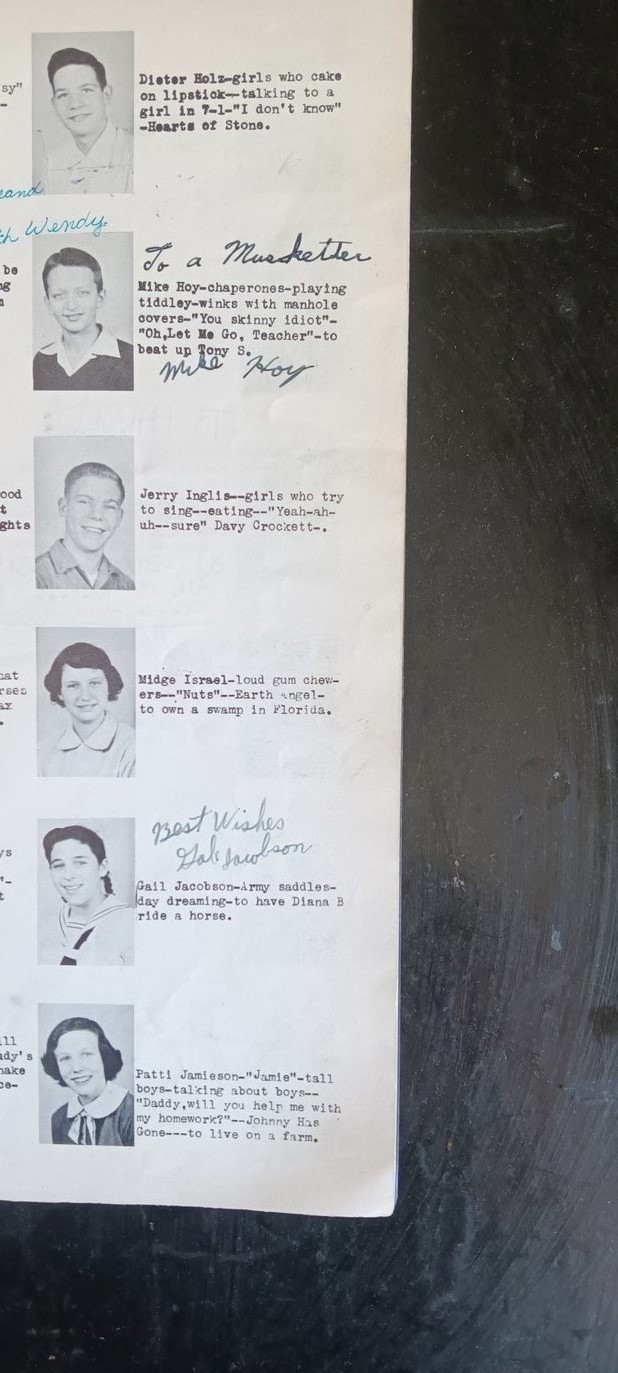 sy"
Dieter Holz-girls who cake
on lipstick--talking to a
girl in 7-1-"I don't know"
-Hearts of Stone.
Wendy.
To a Musketter
be
Mike Hoy-chaperones-playing
tiddley-winks with manhole
covers-"You skinny idiot"-
"Oh,Let Me Go, Teacher"-to
beat up Tony S.
Mike Hoy
ood
Jerry Inglis--girls who try
to sing--eating--"Yeah-ah-
ghts
uh--sure" Davy Crockett-.
Midge Israel-loud gum chew-
ers--"Nuts"--Earth angel-
to own a swamp in Florida.
Best Wishes
Gail Jacobson
Gail Jacobson-Army saddles-
day dreaming-to have Diana B
ride a horse.
Patti Jamieson-"Jamie"-tall
boys-talking about boys--
"Daddy,will you help me with
my homework?"--Johnny Has
Gone---to live on a farm.